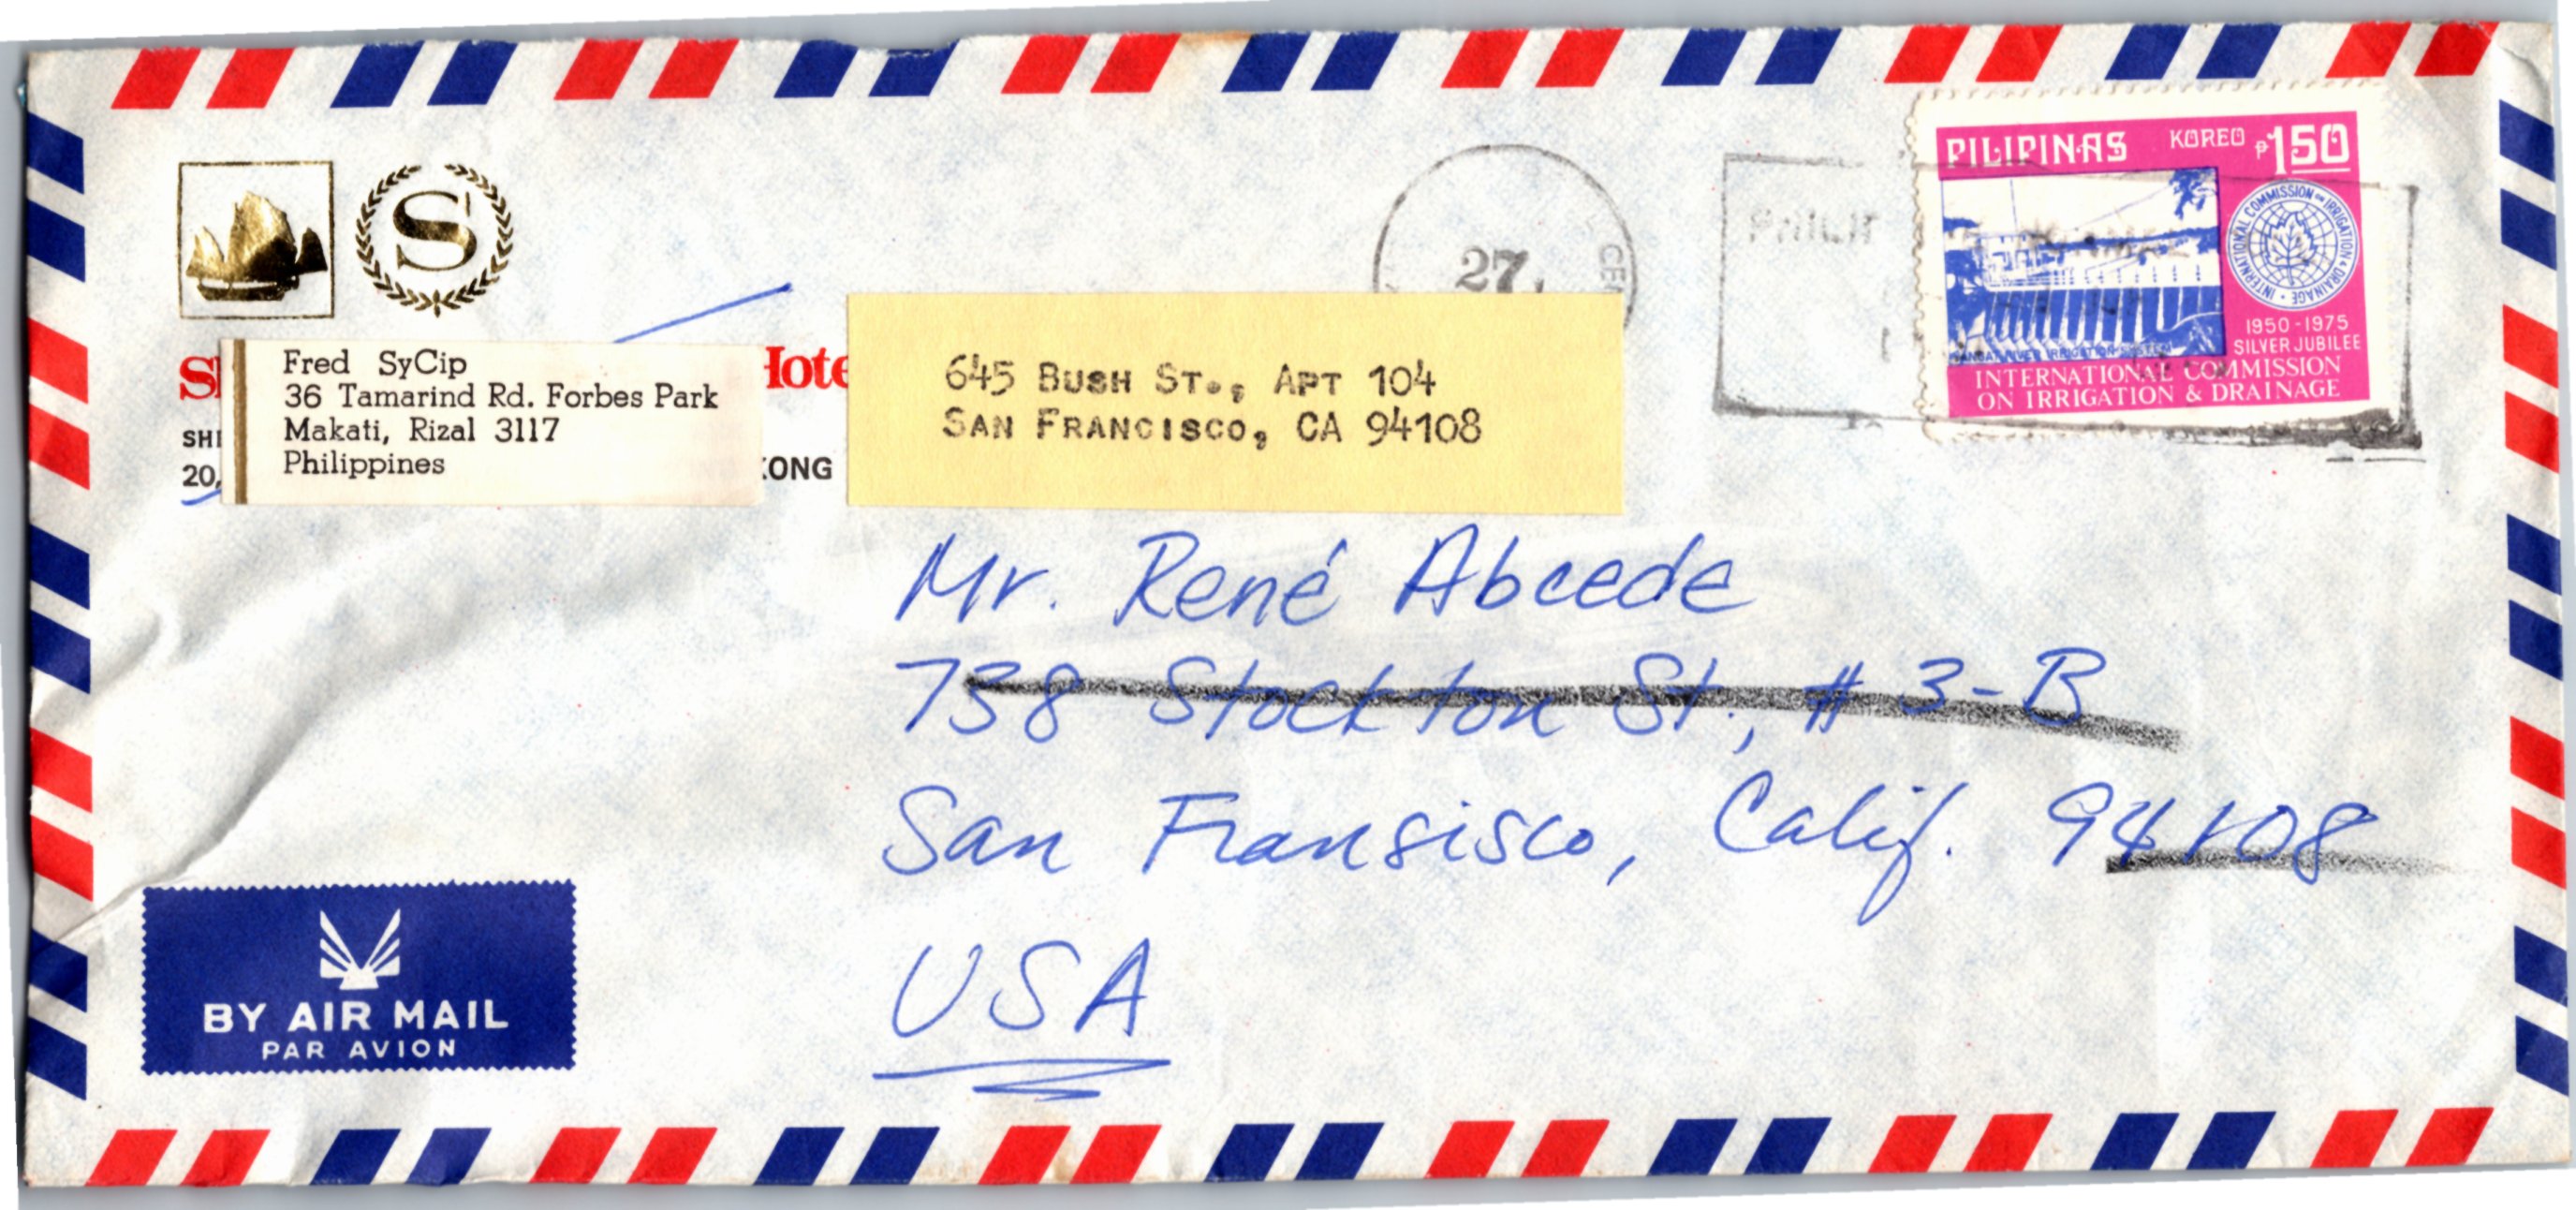 S
Hote
SHE
20,
KONG
Fred SyCip
36 Tamarind Rd. Forbes Park
Makati, Rizal 3117
Philippines
27.
CE
PILIPINAS KOREO ₱1.50
INTERNATIONAL COMMISSION ON IRRIGATION & DRAINAGE
1950-1975
SILVER JUBILEE
INTERNATIONAL COMMISSION
ON IRRIGATION & DRAINAGE
645 BUSH ST., APT 104
SAN FRANCISCO, CA 94108
Mr. René Abcede
738 Stockton St., # 3-B
San Fransisco, Calif. 94108
USA
BY AIR MAIL
PAR AVION